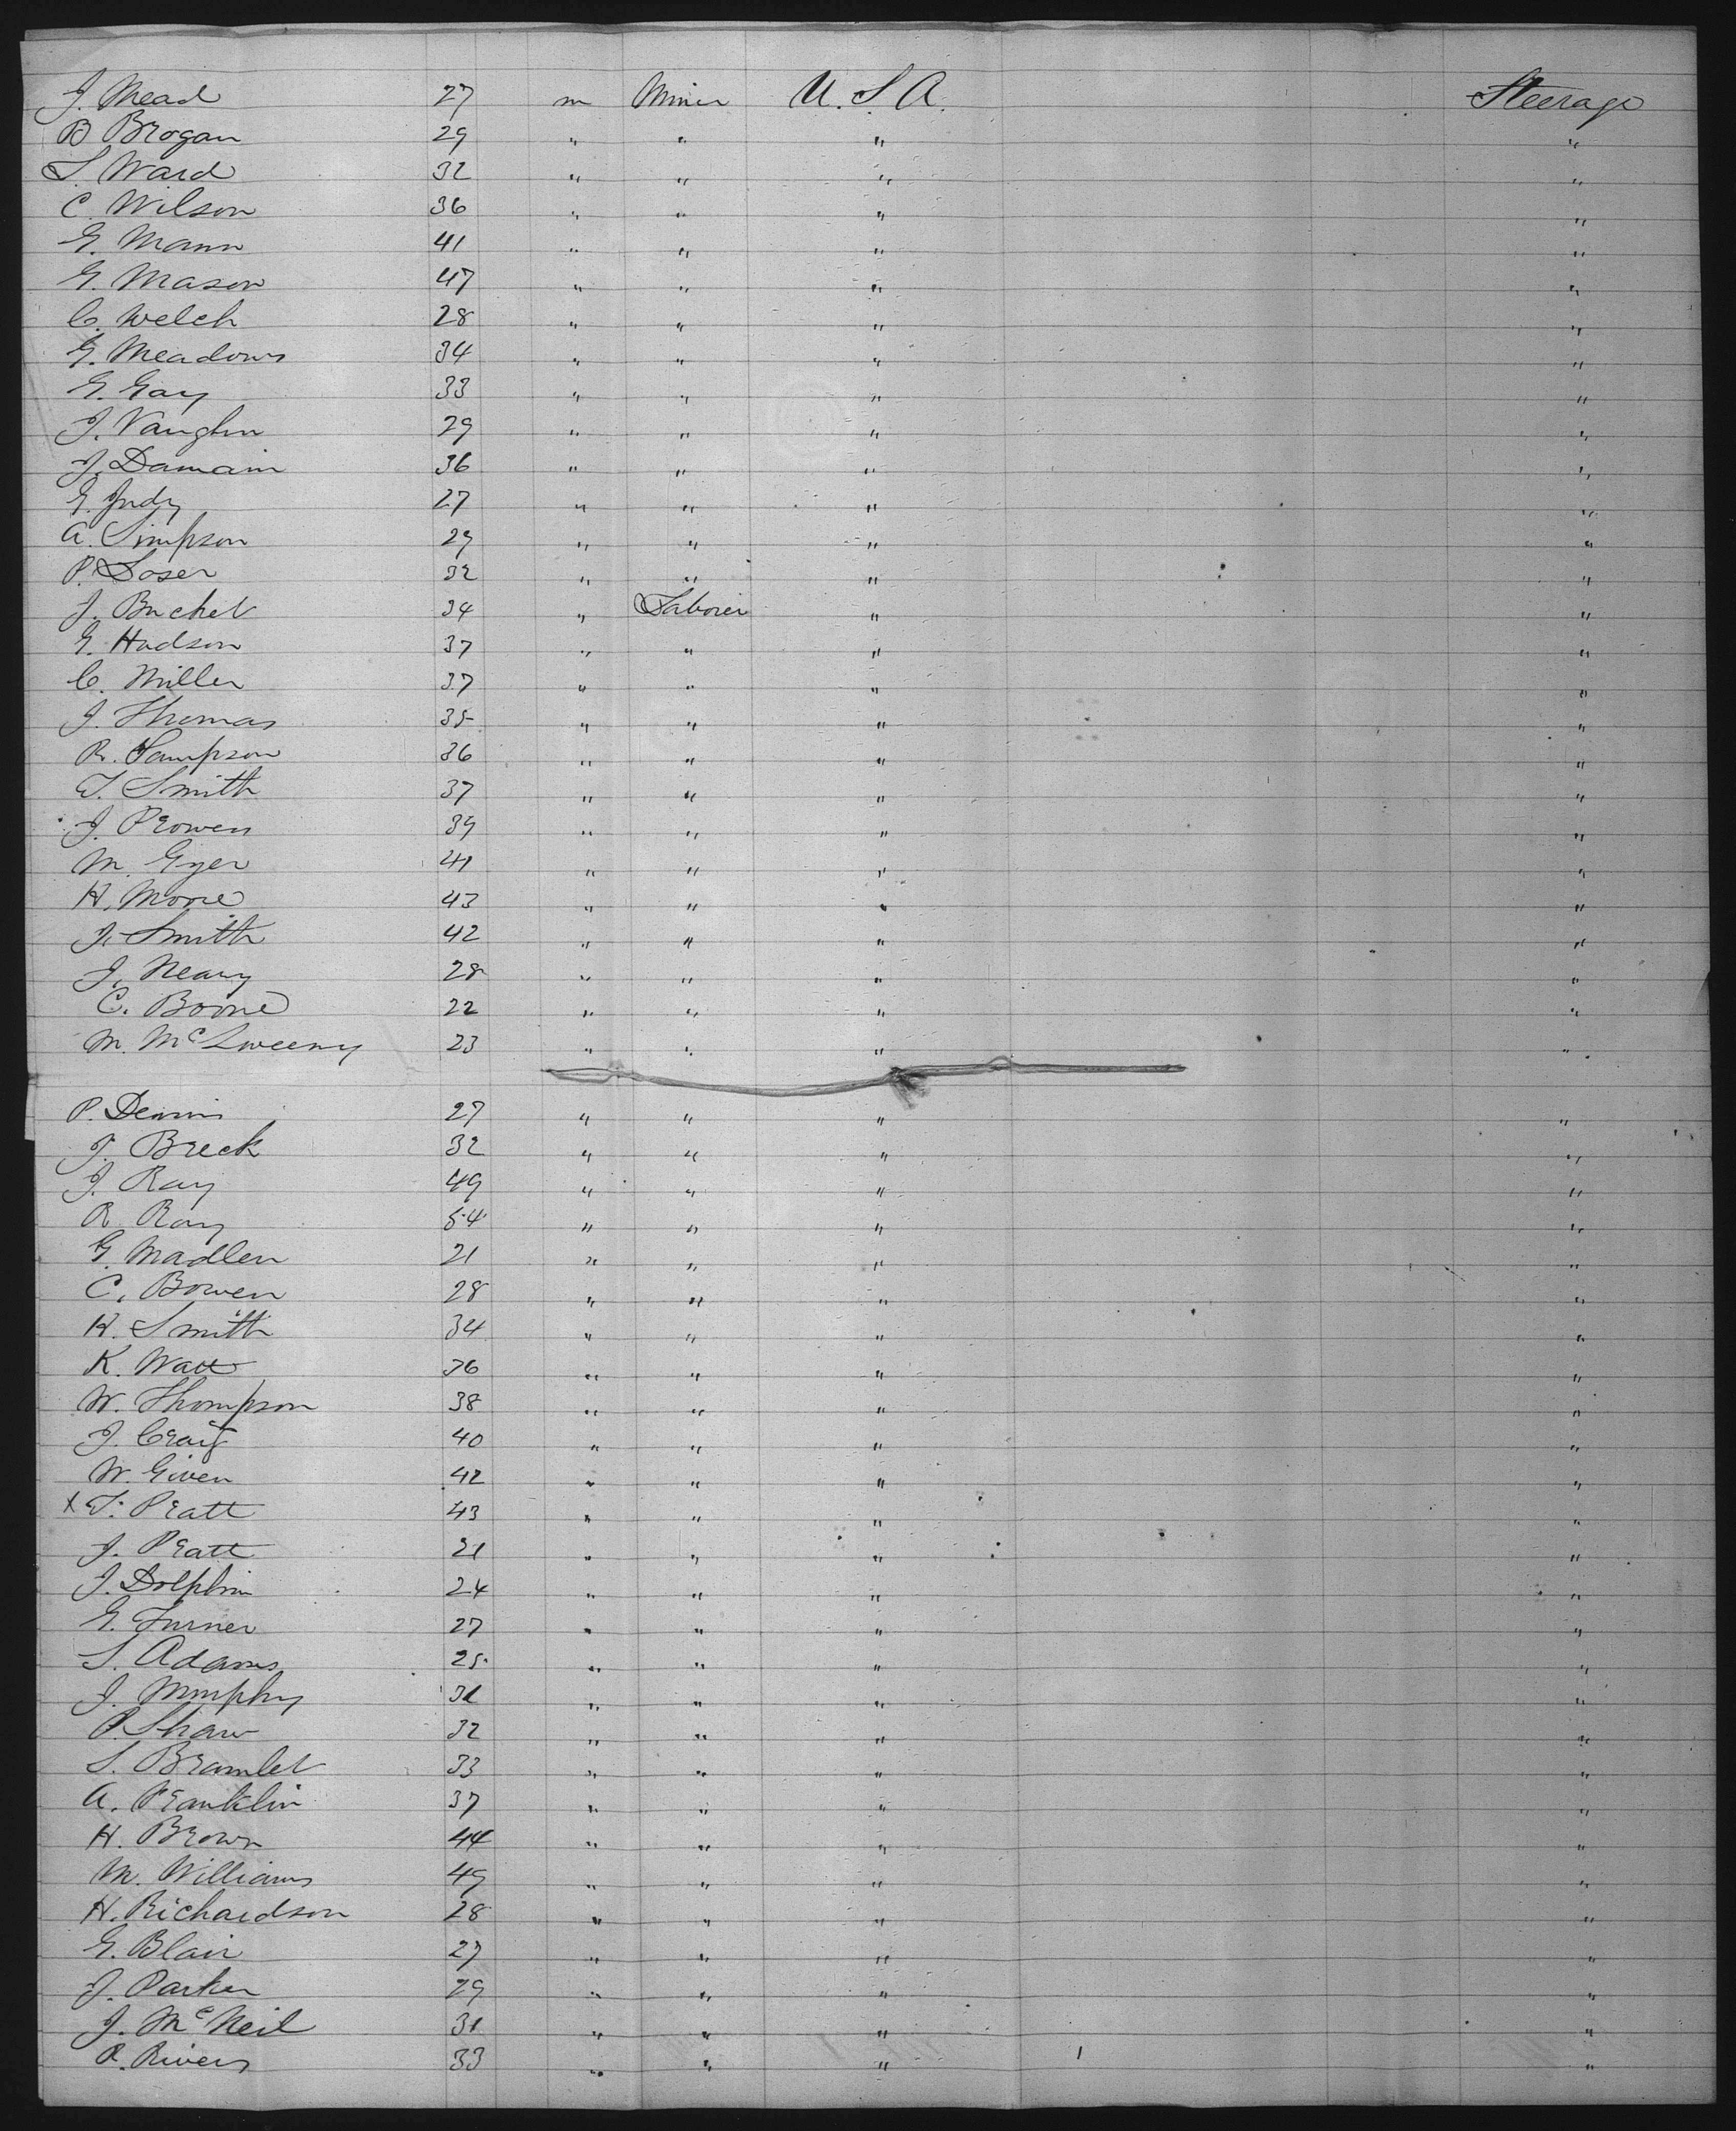 J. Mead 27 m Miner U. S. A. Steerage
B Brogan 29 " " " "
S. Ward 32 " " " "
C. Wilson 36 " " " "
G. Mann 41 " " " "
G. Mason 47 " " " "
C. Welch 28 " " " "
G. Meadows 34 " " " "
G. Gay 33 " " " "
J. Vaughn 29 " " " "
J. Damain 36 " " " "
G. Judy 27 " " " "
A. Simpson 29 " " " "
P. Soser 32 " " " "
J. Buchet 34 " Laborer " "
G. Hudson 37 " " " "
C. Miller 37 " " " "
J. Thomas 35 " " " "
R. Sampson 36 " " " "
T. Smith 37 " " " "
J. Prowen 39 " " " "
M. Gyer 41 " " " "
H. Moore 43 " " " "
J. Smith 42 " " " "
J. Neary 28 " " " "
C. Boone 22 " " " "
M. McSweeny 23 " " " "
P. Dennis 27 " " " "
J. Breck 32 " " " "
J. Ray 49 " " " "
R. Ray 54 " " " "
G. Madlen 21 " " " "
C. Bowen 28 " " " "
H. Smith 34 " " " "
K. Watt 36 " " " "
W. Thompson 38 " " " "
J. Craig 40 " " " "
W. Given 42 " " " "
x T. Pratt 43 " " " "
J. Pratt 21 " " " "
J. Dolphin 24 " " " "
G. Turner 27 " " " "
S. Adams 25 " " " "
J. Murphy 31 " " " "
P. Shaw 32 " " " "
S. Bramlet 33 " " " "
A. Franklin 37 " " " "
H. Brown 44 " " " "
M. Williams 49 " " " "
H. Richardson 28 " " " "
G. Blair 27 " " " "
J. Parker 29 " " " "
J. McNeil 31 " " " "
R. Rivers 33 " " " "